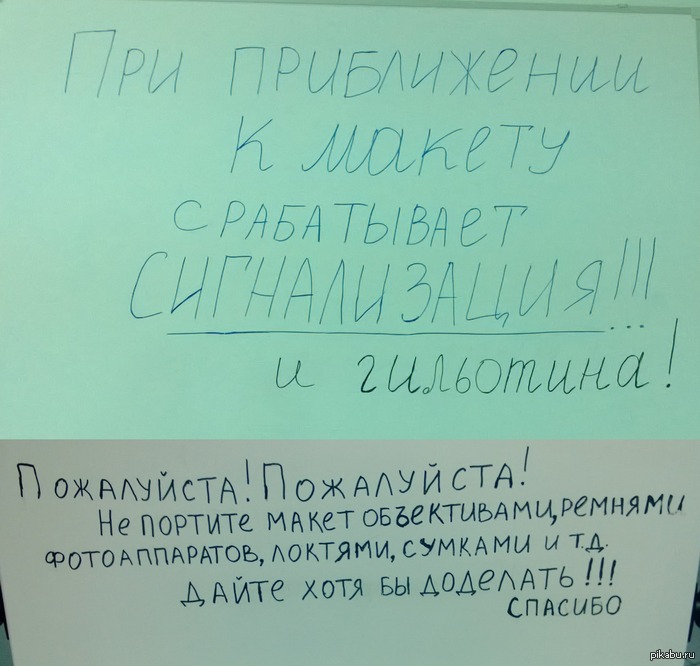 При приближении
к макету
срабатывает
СИГНАЛИЗАЦИЯ!!!
и гильотина!
Пожалуйста! Пожалуйста!
Не портите макет объективами, ремнями
фотоаппаратов, локтями, сумками и т.д.
дайте хотя бы доделать!!!
спасибо
pikabu.ru